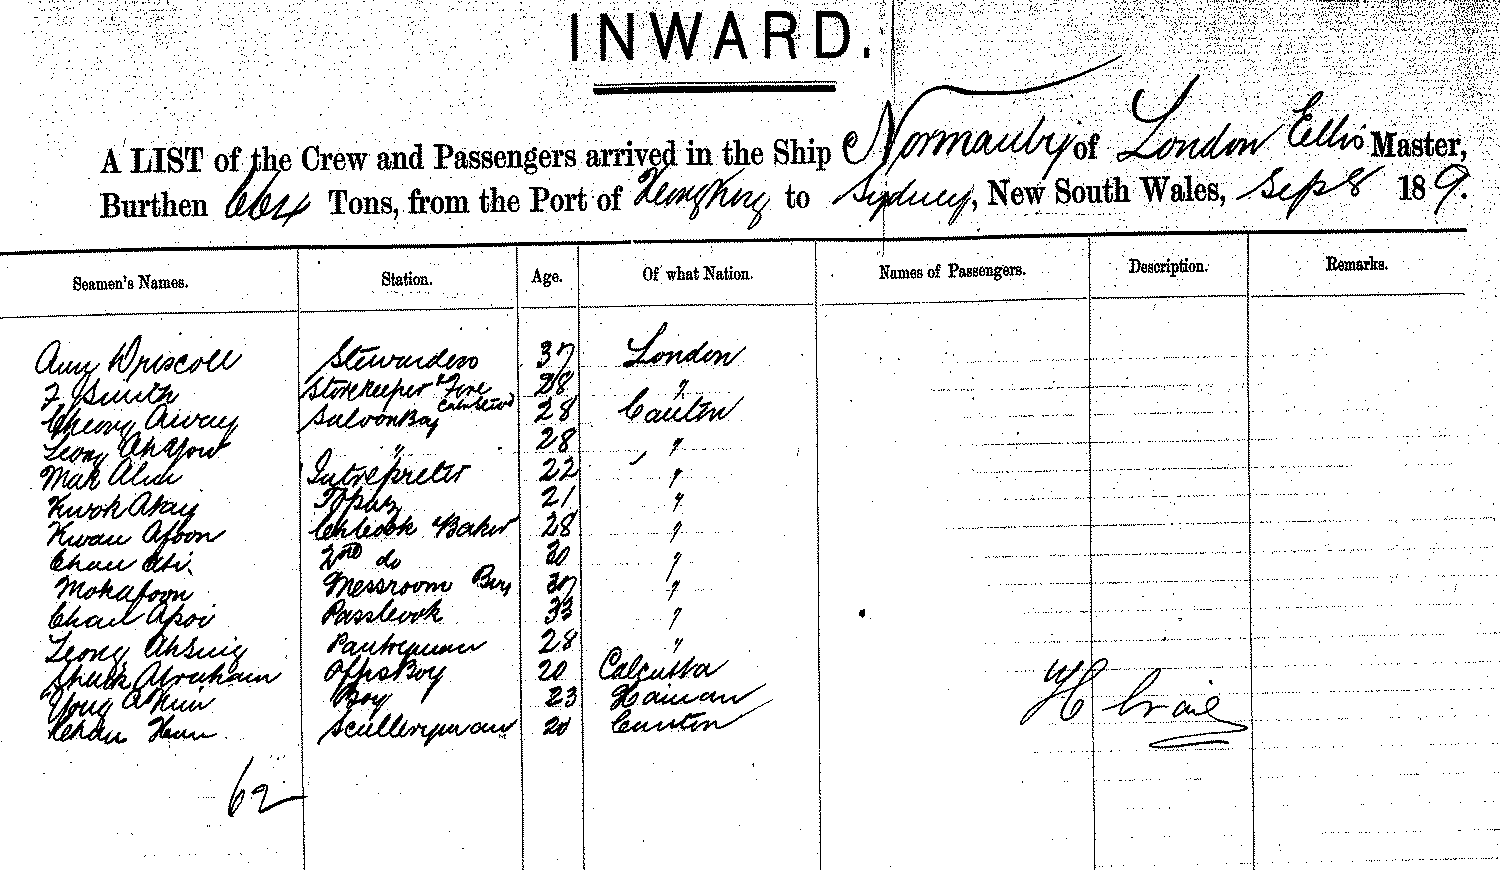 INWARD.
A LIST of the Crew and Passengers arrived in the Ship Normanby of London Ellis Master,
Burthen 664 Tons, from the Port of Hong Kong to Sydney, New South Wales, Sep 8 189.
Seamen's Names. Station. Age. Of what Nation. Names of Passengers. Description. Remarks.
Amy Driscoll Stewardess 37 London
F Smith Storekeeper & Fore Cabin Stewd 28 "
Cheong Away Saloon Boy 28 Canton
Leong Ahyow " 28 "
Mak Alum Intrepreter 22 "
Kwok Akay Topaz 21 "
Kwan Afoon Ch Cook & Baker 28 "
Chan Ahi 2nd do 30 "
Mok afoon Messroom Boy 37 "
Chan Apoi Pass Cook 33 "
Leong Ahsing Pantryman 28 "
Shaik Abraham Offrs Boy 20 Calcutta
Yong a Kim Boy 23 Hainan
Chan Hun Scullerymau 20 Canton
62